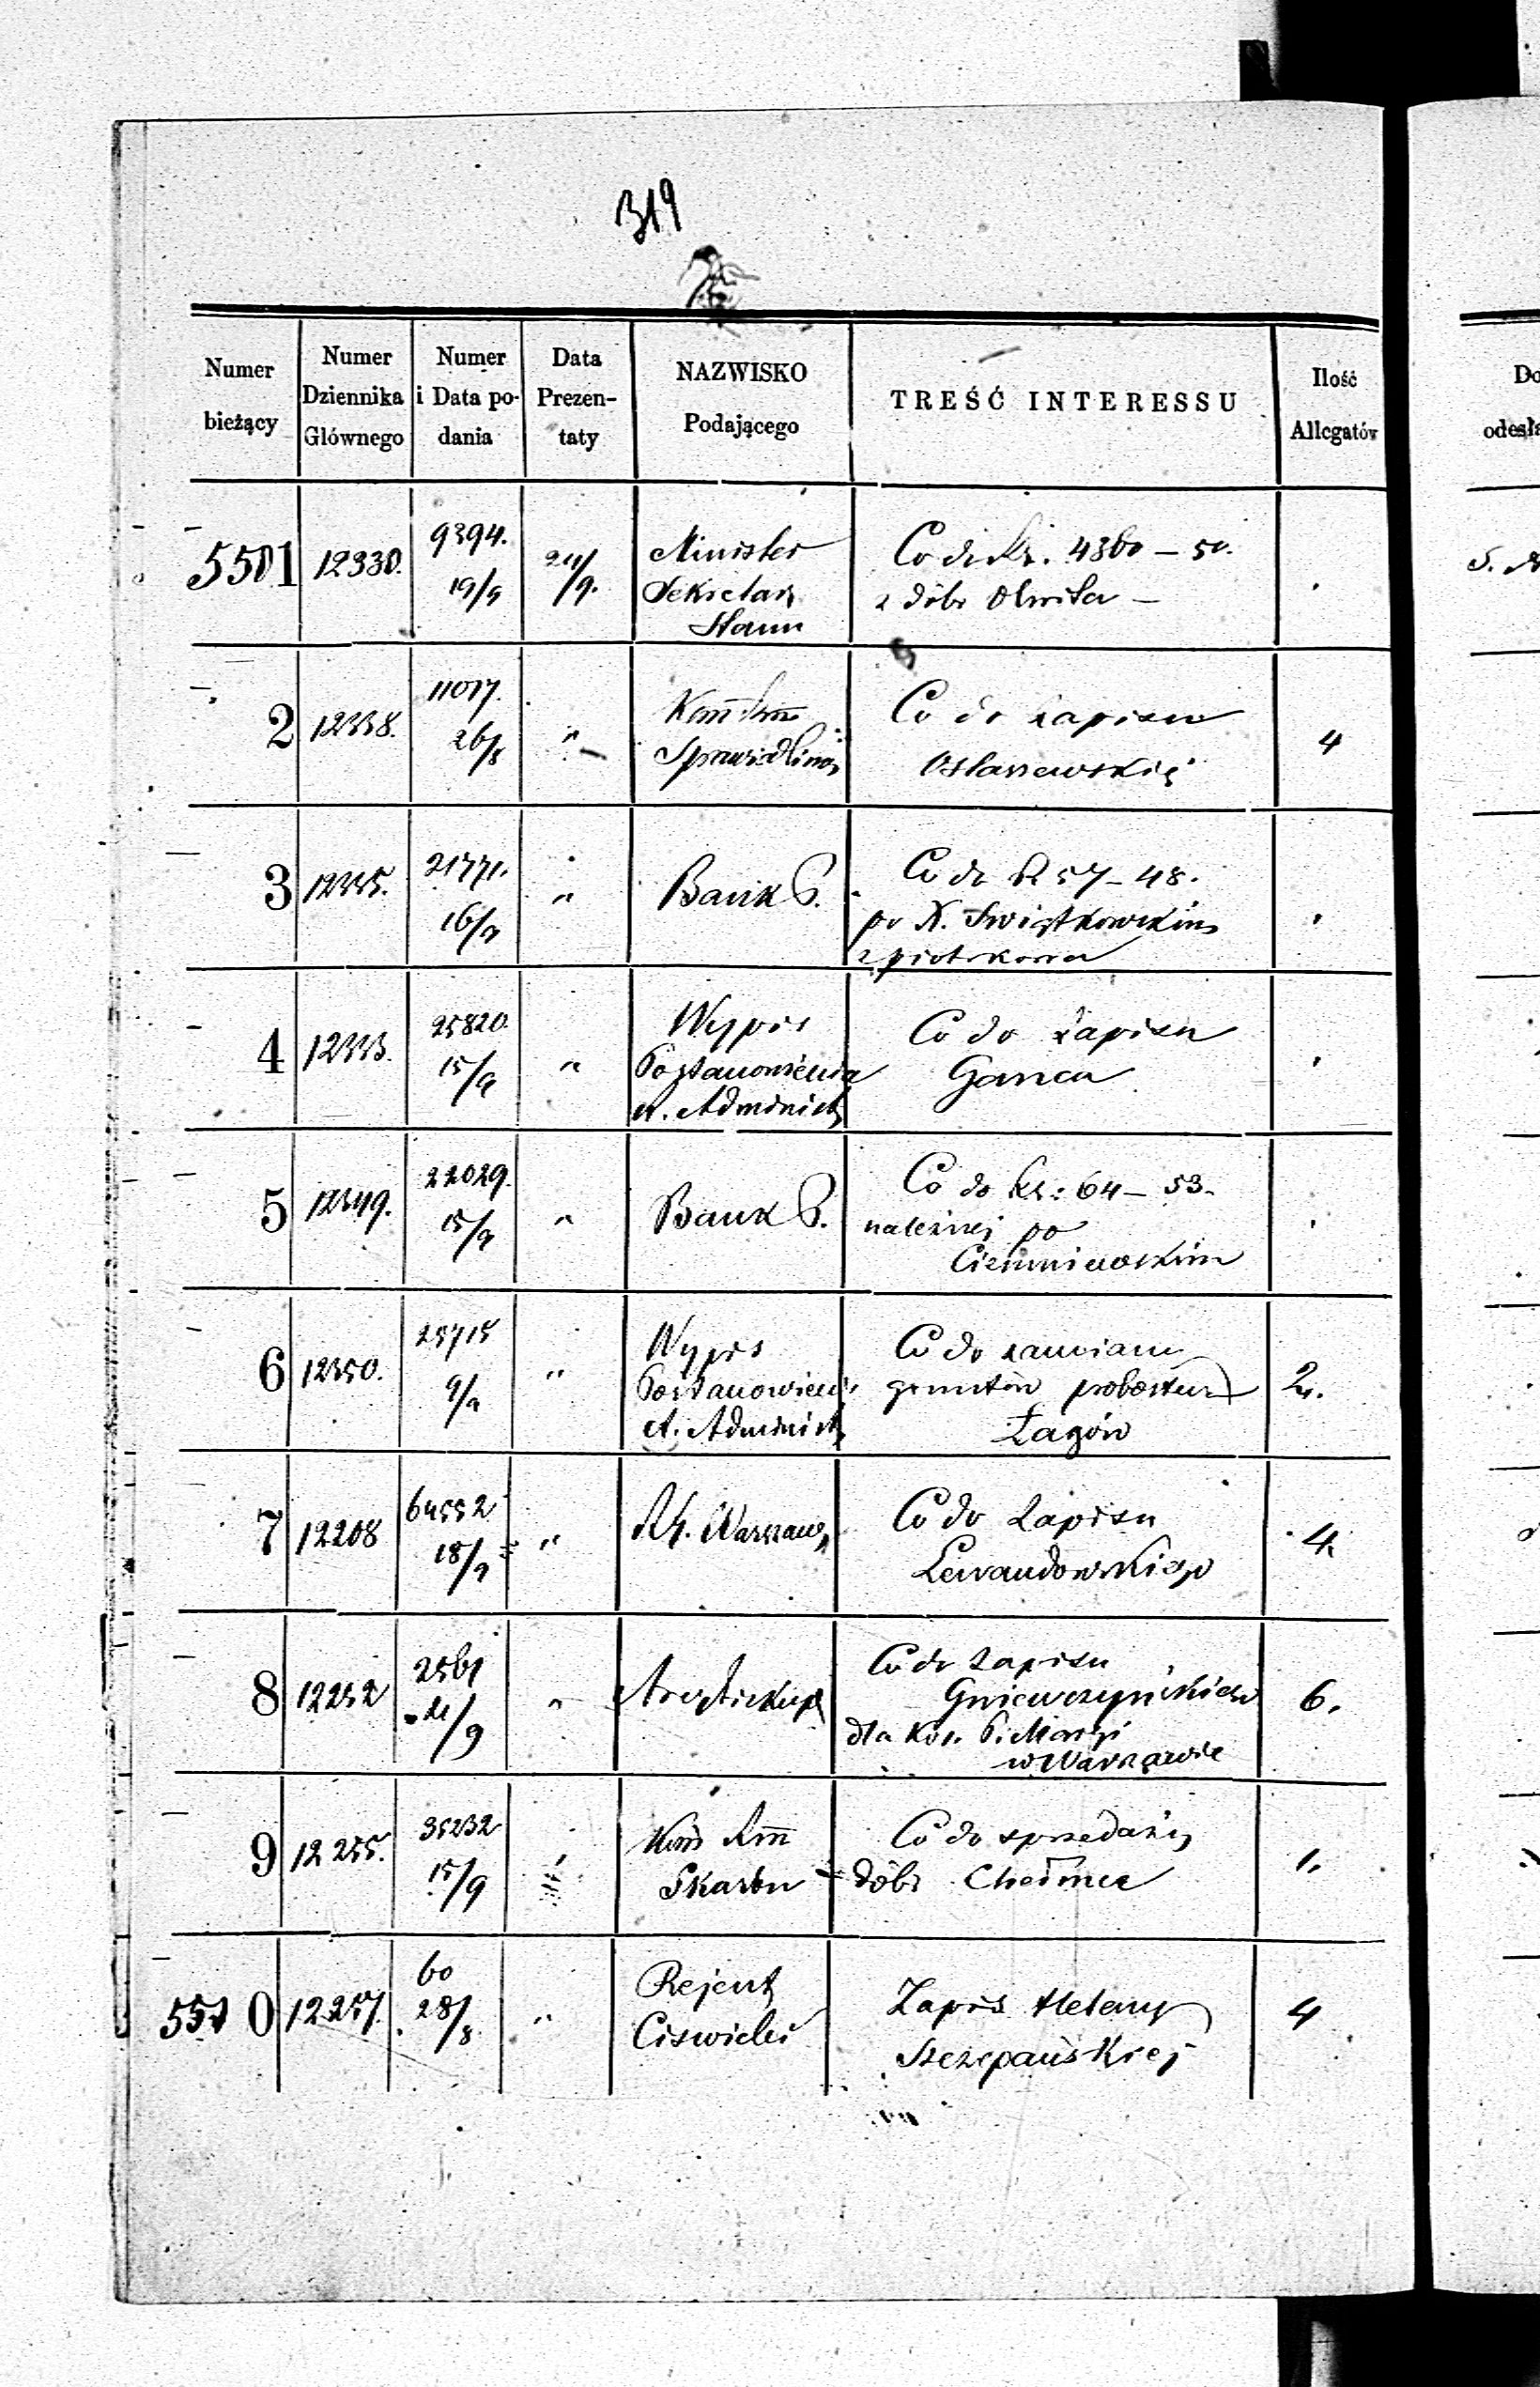 319
Numer bieżący | Numer Dziennika Głównego | Numer i Data podania | Data Prezentaty | NAZWISKO Podającego | TREŚĆ INTERESSU | Ilość Allegatów
5501 | 12330. | 9394. 19/9 | 24/9. | Minister Sekretarz Stanu | Co do Rs. 4360 – 50. z dóbr
2 | 12338. | 11017. 26/8 | " | Sprawiedliwoś | Co do zapisu Ostaszewskiej | 4
3 | 12335. | 21771. 16/9 | " | Bank P. | Co do Rs 57 – 48. po X. Swiątkowskim z Piotrkowa
4 | 12333. | 25820. 15/9 | " | Wypis Postanowienia R. Administ | Co do zapisu Ganca
5 | 12349. | 22029. 15/9 | " | Bank P. | Co do Rs: 64 – 53. należnej po Ciemniewskim
6 | 12350. | 25715 9/9 | " | Wypis Postanowieni R. Administ | Co do zamiany gruntów probostwa Łagów | 2.
7 | 12208 | 64552 18/9 | " | R.G. Warszaws | Co do Zapisu Lewandowskiego | 4.
8 | 12252 | 2561 21/9 | " | Arcybiskup | Co do Zapisu Gniewczyńskiego dla Koś. P. Maryi w Warszawie | 6.
9 | 12255. | 35232 15/9 | " | Skarbu | Co do sprzedaży dóbr Chełmce | 1.
5510 | 12257. | 60 28/8 | " | Rejent | Zapis Heleny Szczepańskiej | 4
Do
odesła